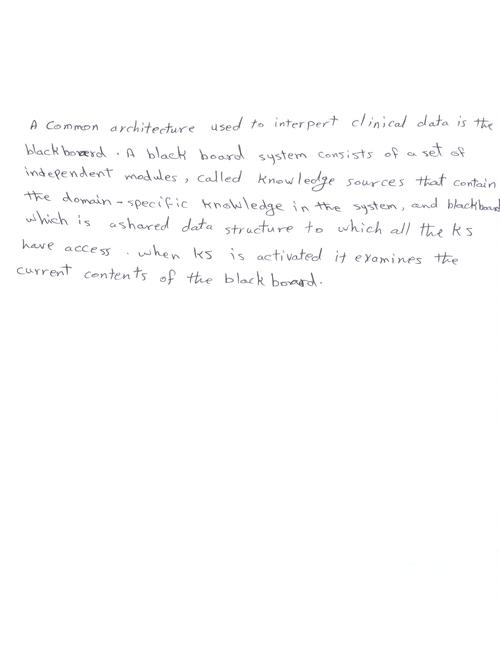 A Common architecture used to interpert clinical data is the
blackboard. A black board system consists of a set of
independent modules, called knowledge sources that contain
the domain-specific knowledge in the system, and blackboard
which is ashared data structure to which all the KS
have access. when KS is activated it examines the
current contents of the black board.